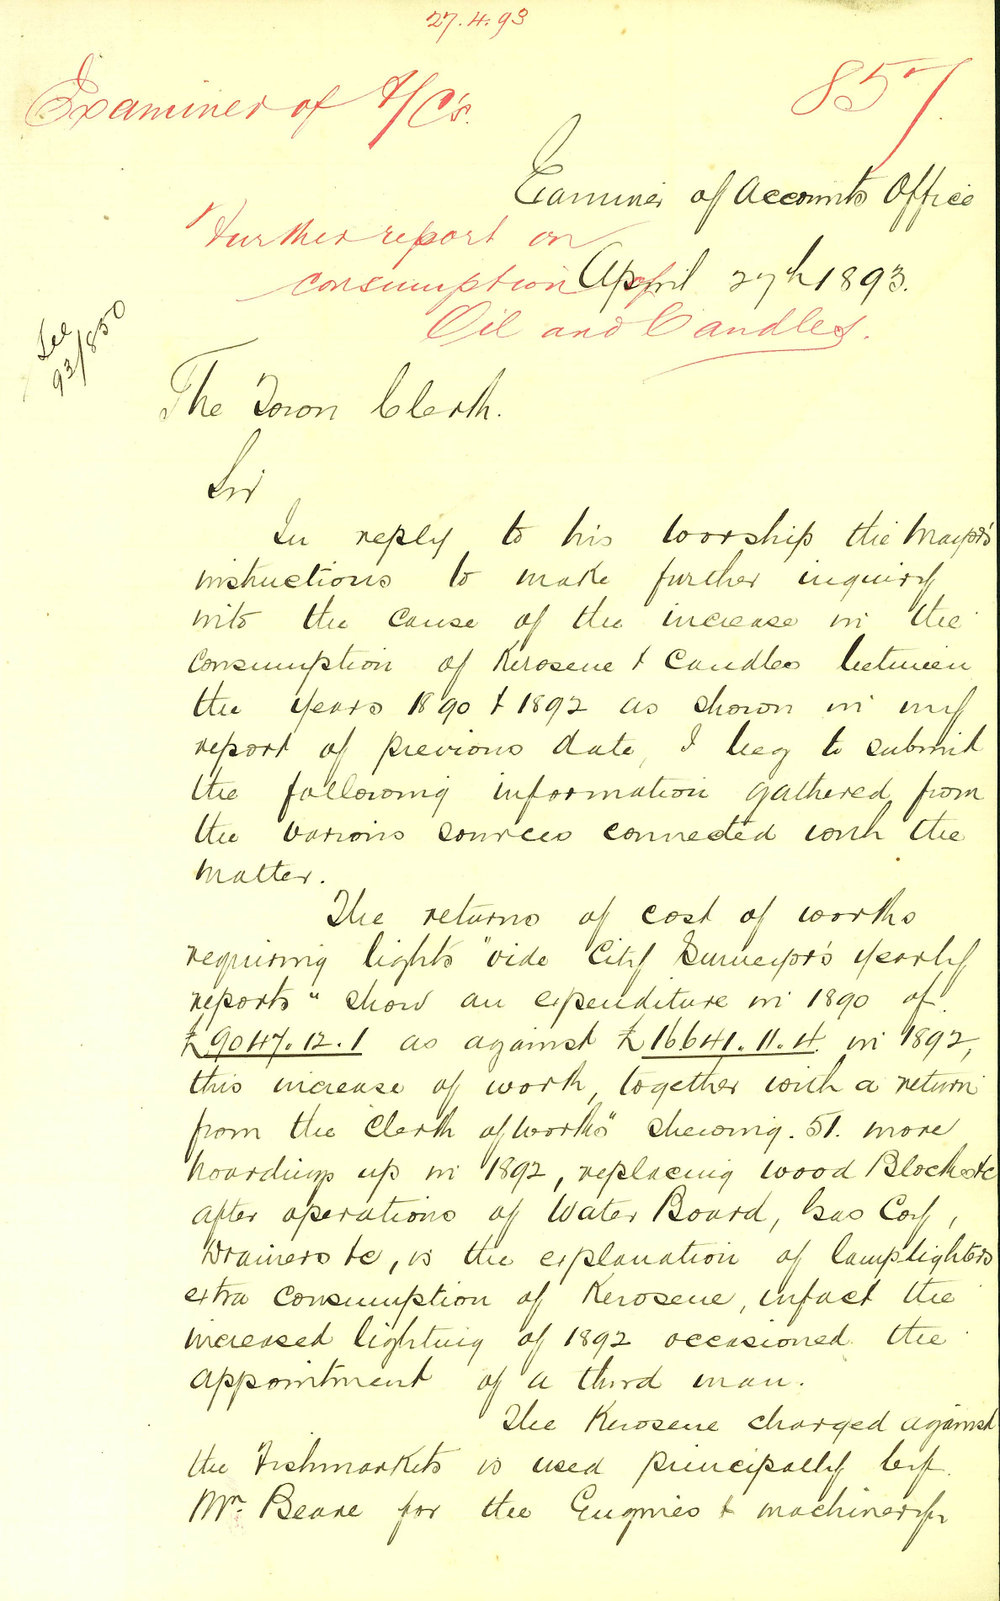 27.4.93
Examiner of A/C's.
857.
Examiner of Accounts Office
Further report on
consumption of
April 27th 1893.
Oil and Candles.
See
93/850
The Town Clerk.
Sir
In reply to his Worship the Mayor's
instructions to make further inquiry
into the cause of the increase in the
Consumption of Kerosene & Candles between
the years 1890 & 1892 as shown in my
report of previous date, I beg to submit
the following information gathered from
the various sources connected with the
matter.
The returns of cost of works
requiring lights "vide City Surveyor's yearly
reports" show an expenditure in 1890 of
£9047.12.1 as against £16641.11.4 in 1892,
this increase of work, together with a return
from the Clerk of Works" shewing. 51. more
hoardings up in 1892, replacing wood Blocks &c
after operations of Water Board, Gas Coy,
Drainers &c, is the explanation of lamplighters
extra Consumption of Kerosene, infact the
increased lighting of 1892 occasioned the
appointment of a third man.
The Kerosene charged against
the Fishmarkets is used principally by
Mr. Beare for the Engines & machinery